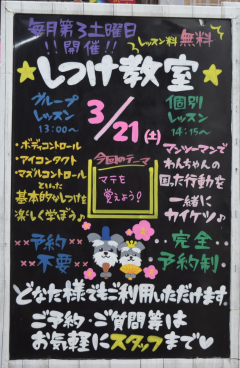 毎月第3土曜日
!!開催!!
レッスン料 無料
★しつけ教室★
グループ
レッスン
13:00〜
3/21(土)
個別
レッスン
14:15〜
・ボディコントロール
・アイコンタクト
・マズルコントロール
といった
基本的なしつけを
楽しく学ぼう♪
今回のテーマ
マテを
覚えよう!
マンツーマンで
わんちゃんの
困った行動を
一緒に
カイケツ♪
予約
不要
完全
予約制
どなた様でもご利用いただけます。
ご予約・ご質問等は
お気軽にスタッフまで♥